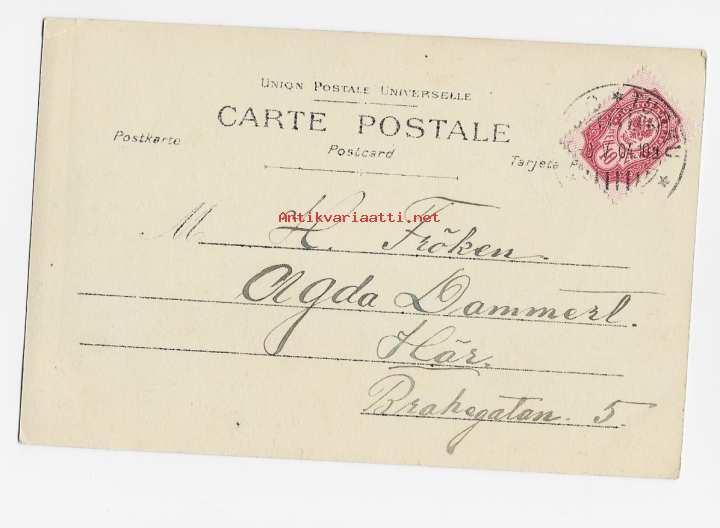 UNION POSTALE UNIVERSELLE
CARTE POSTALE
Postkarte
Postcard
Tarjeta
Antikvariaatti.net
M H. Fröken
Agda Dammert.
Här.
Brahegatan. 5.